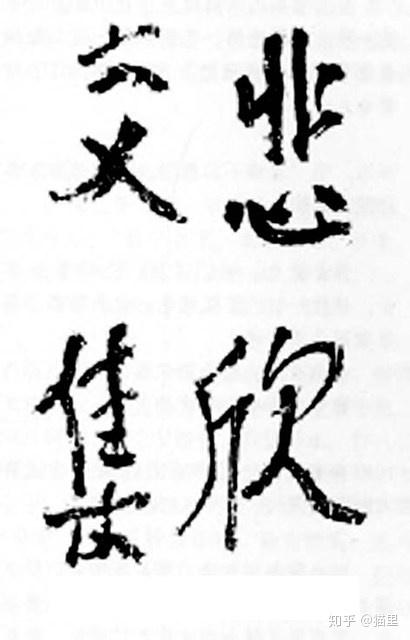 悲欣
交集
知乎 @猫里